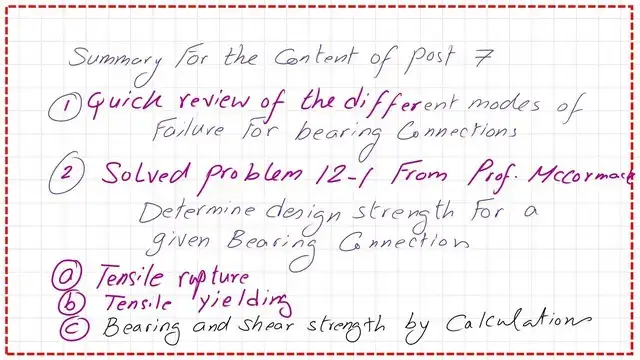 Summary For the Content of post 7
① Quick review of the different modes of
Failure For bearing Connections
② Solved problem 12-1 From Prof. McCormack
Determine design strength For a
given Bearing Connection
ⓐ Tensile rupture
ⓑ Tensile yielding
ⓒ Bearing and shear strength by Calculation